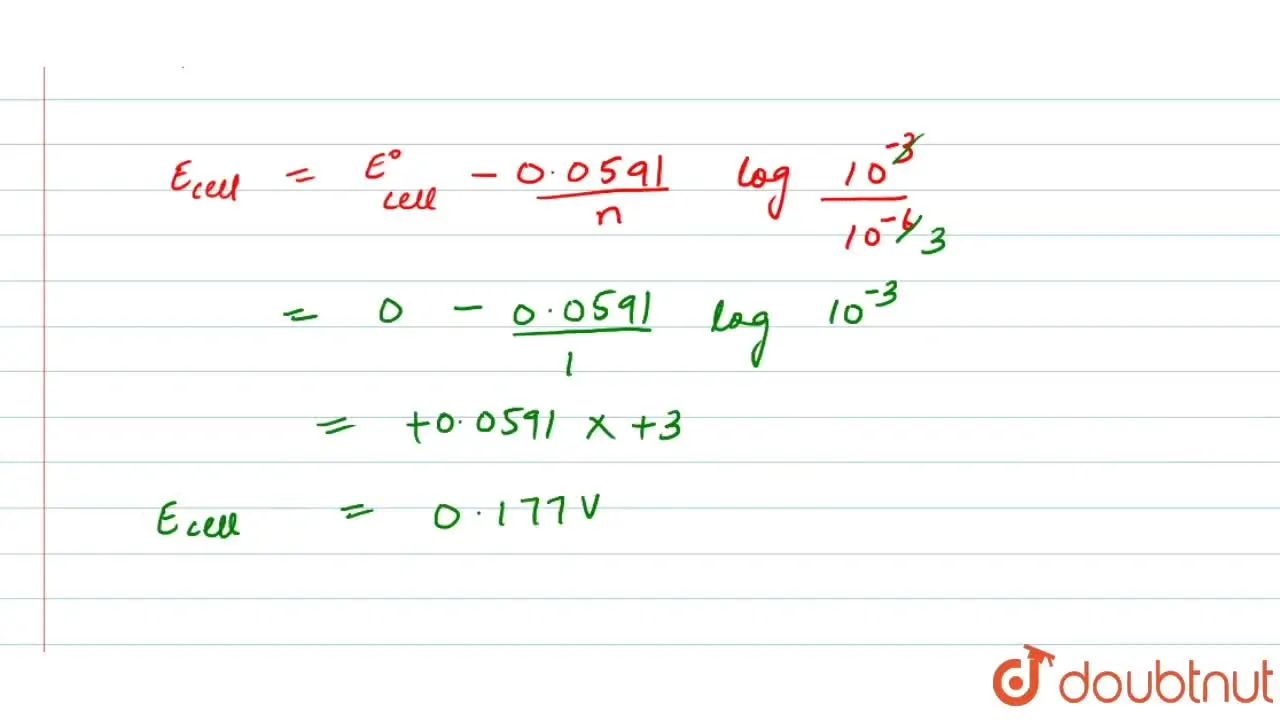 E cell = E° cell - 0.0591/n log 10^-3/10^-6 3
= 0 - 0.0591/1 log 10^-3
= +0.0591 x +3
E cell = 0.177 V
doubtnut